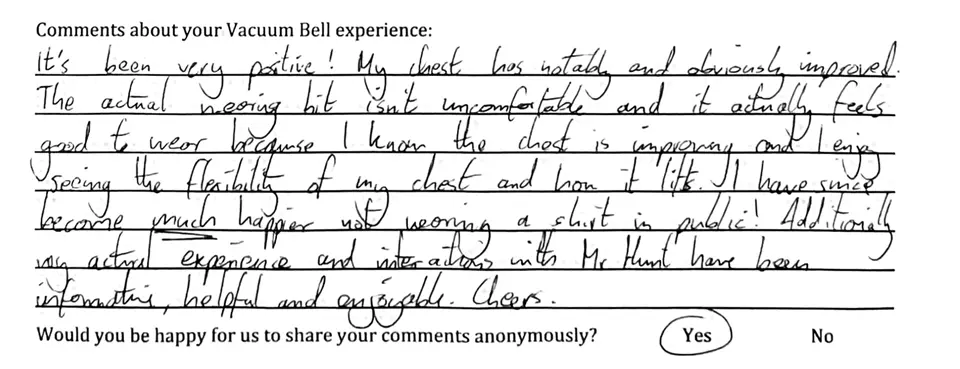 Comments about your Vacuum Bell experience:
It's been very positive! My chest has notably and obviously improved.
The actual wearing bit isn't uncomfortable and it actually feels
good to wear because I know the chest is improving and I enjoy
seeing the flexibility of my chest and how it lifts. I have since
become much happier not wearing a shirt in public! Additionally
my actual experience and interactions with Mr Hunt have been
informative, helpful and enjoyable. Cheers.
Would you be happy for us to share your comments anonymously? Yes No